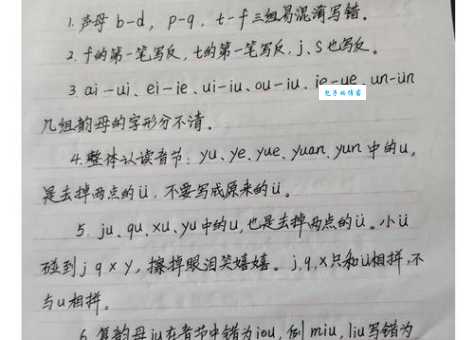 1. 声母 b-d, p-q, t-f 三组易混淆写错。
2. f的第一笔写反, t的第一笔写反, j、s 也写反。
3. ai-ui、ei-ie、ui-iu、ou-iu、ie-ue、un-ün
包子的博客
几组韵母的字形分不清。
4. 整体认读音节: yu、ye、yue、yuan、yun 中的u,
是去掉两点的ü, 不要写成原来的ü。
5. ju、qu、xu、yu中的u, 也是去掉两点的ü。小ü
碰到j q x y, 擦掉眼泪笑嘻嘻。j,q,x只和ü相拼,不
与u相拼。
6. 复韵母iu在音节中错为iou, 例 miu, liu写错为